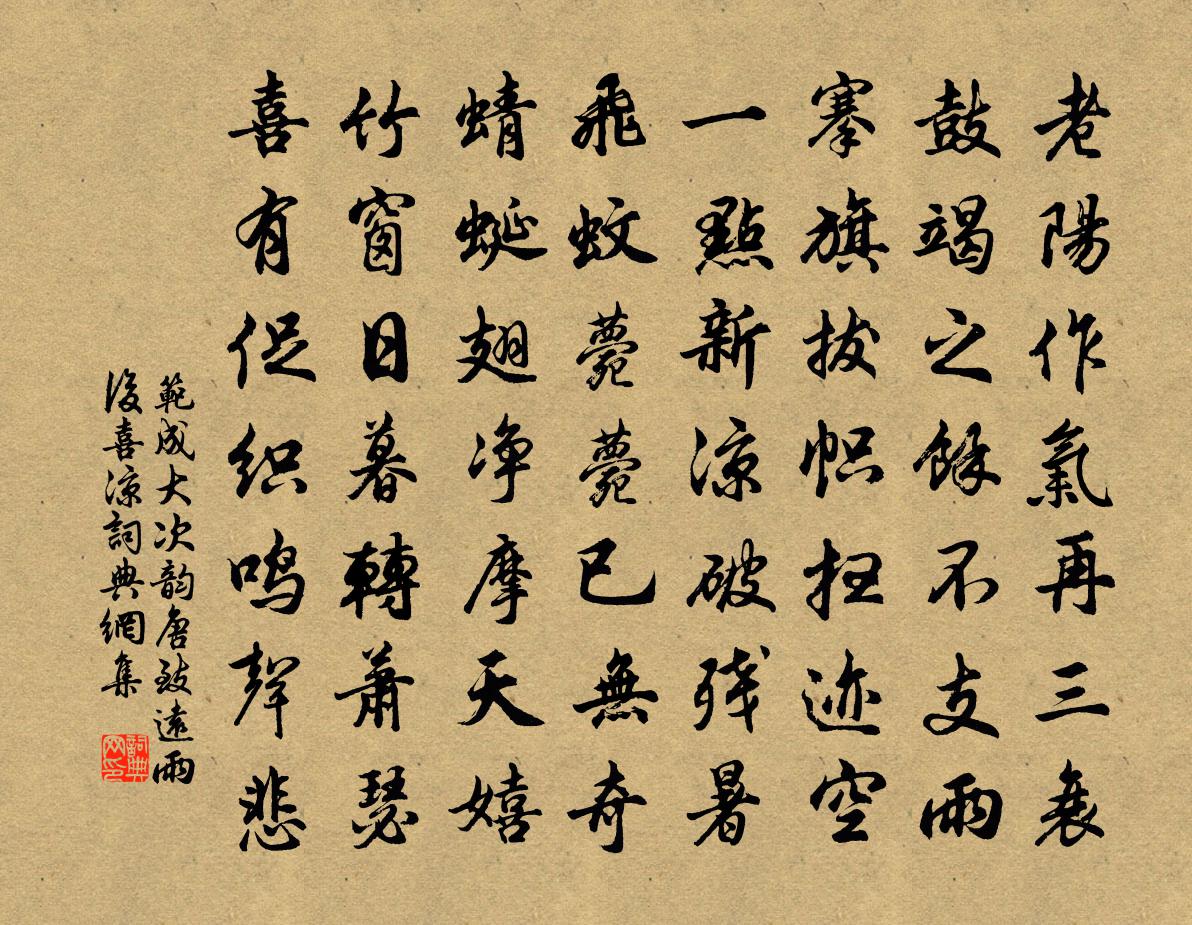 老陽作氣再三衰
鼓竭之餘不支雨
搴旗拔帜扫迹空
一點新涼破残暑
飛蚊薨薨已無奇
蜻蜒翅净摩天嬉
竹窗日暮轉萧瑟
喜有促织鸣聲悲
範成大次韵唐致遠雨
後喜凉詞典網集
詞典
网印